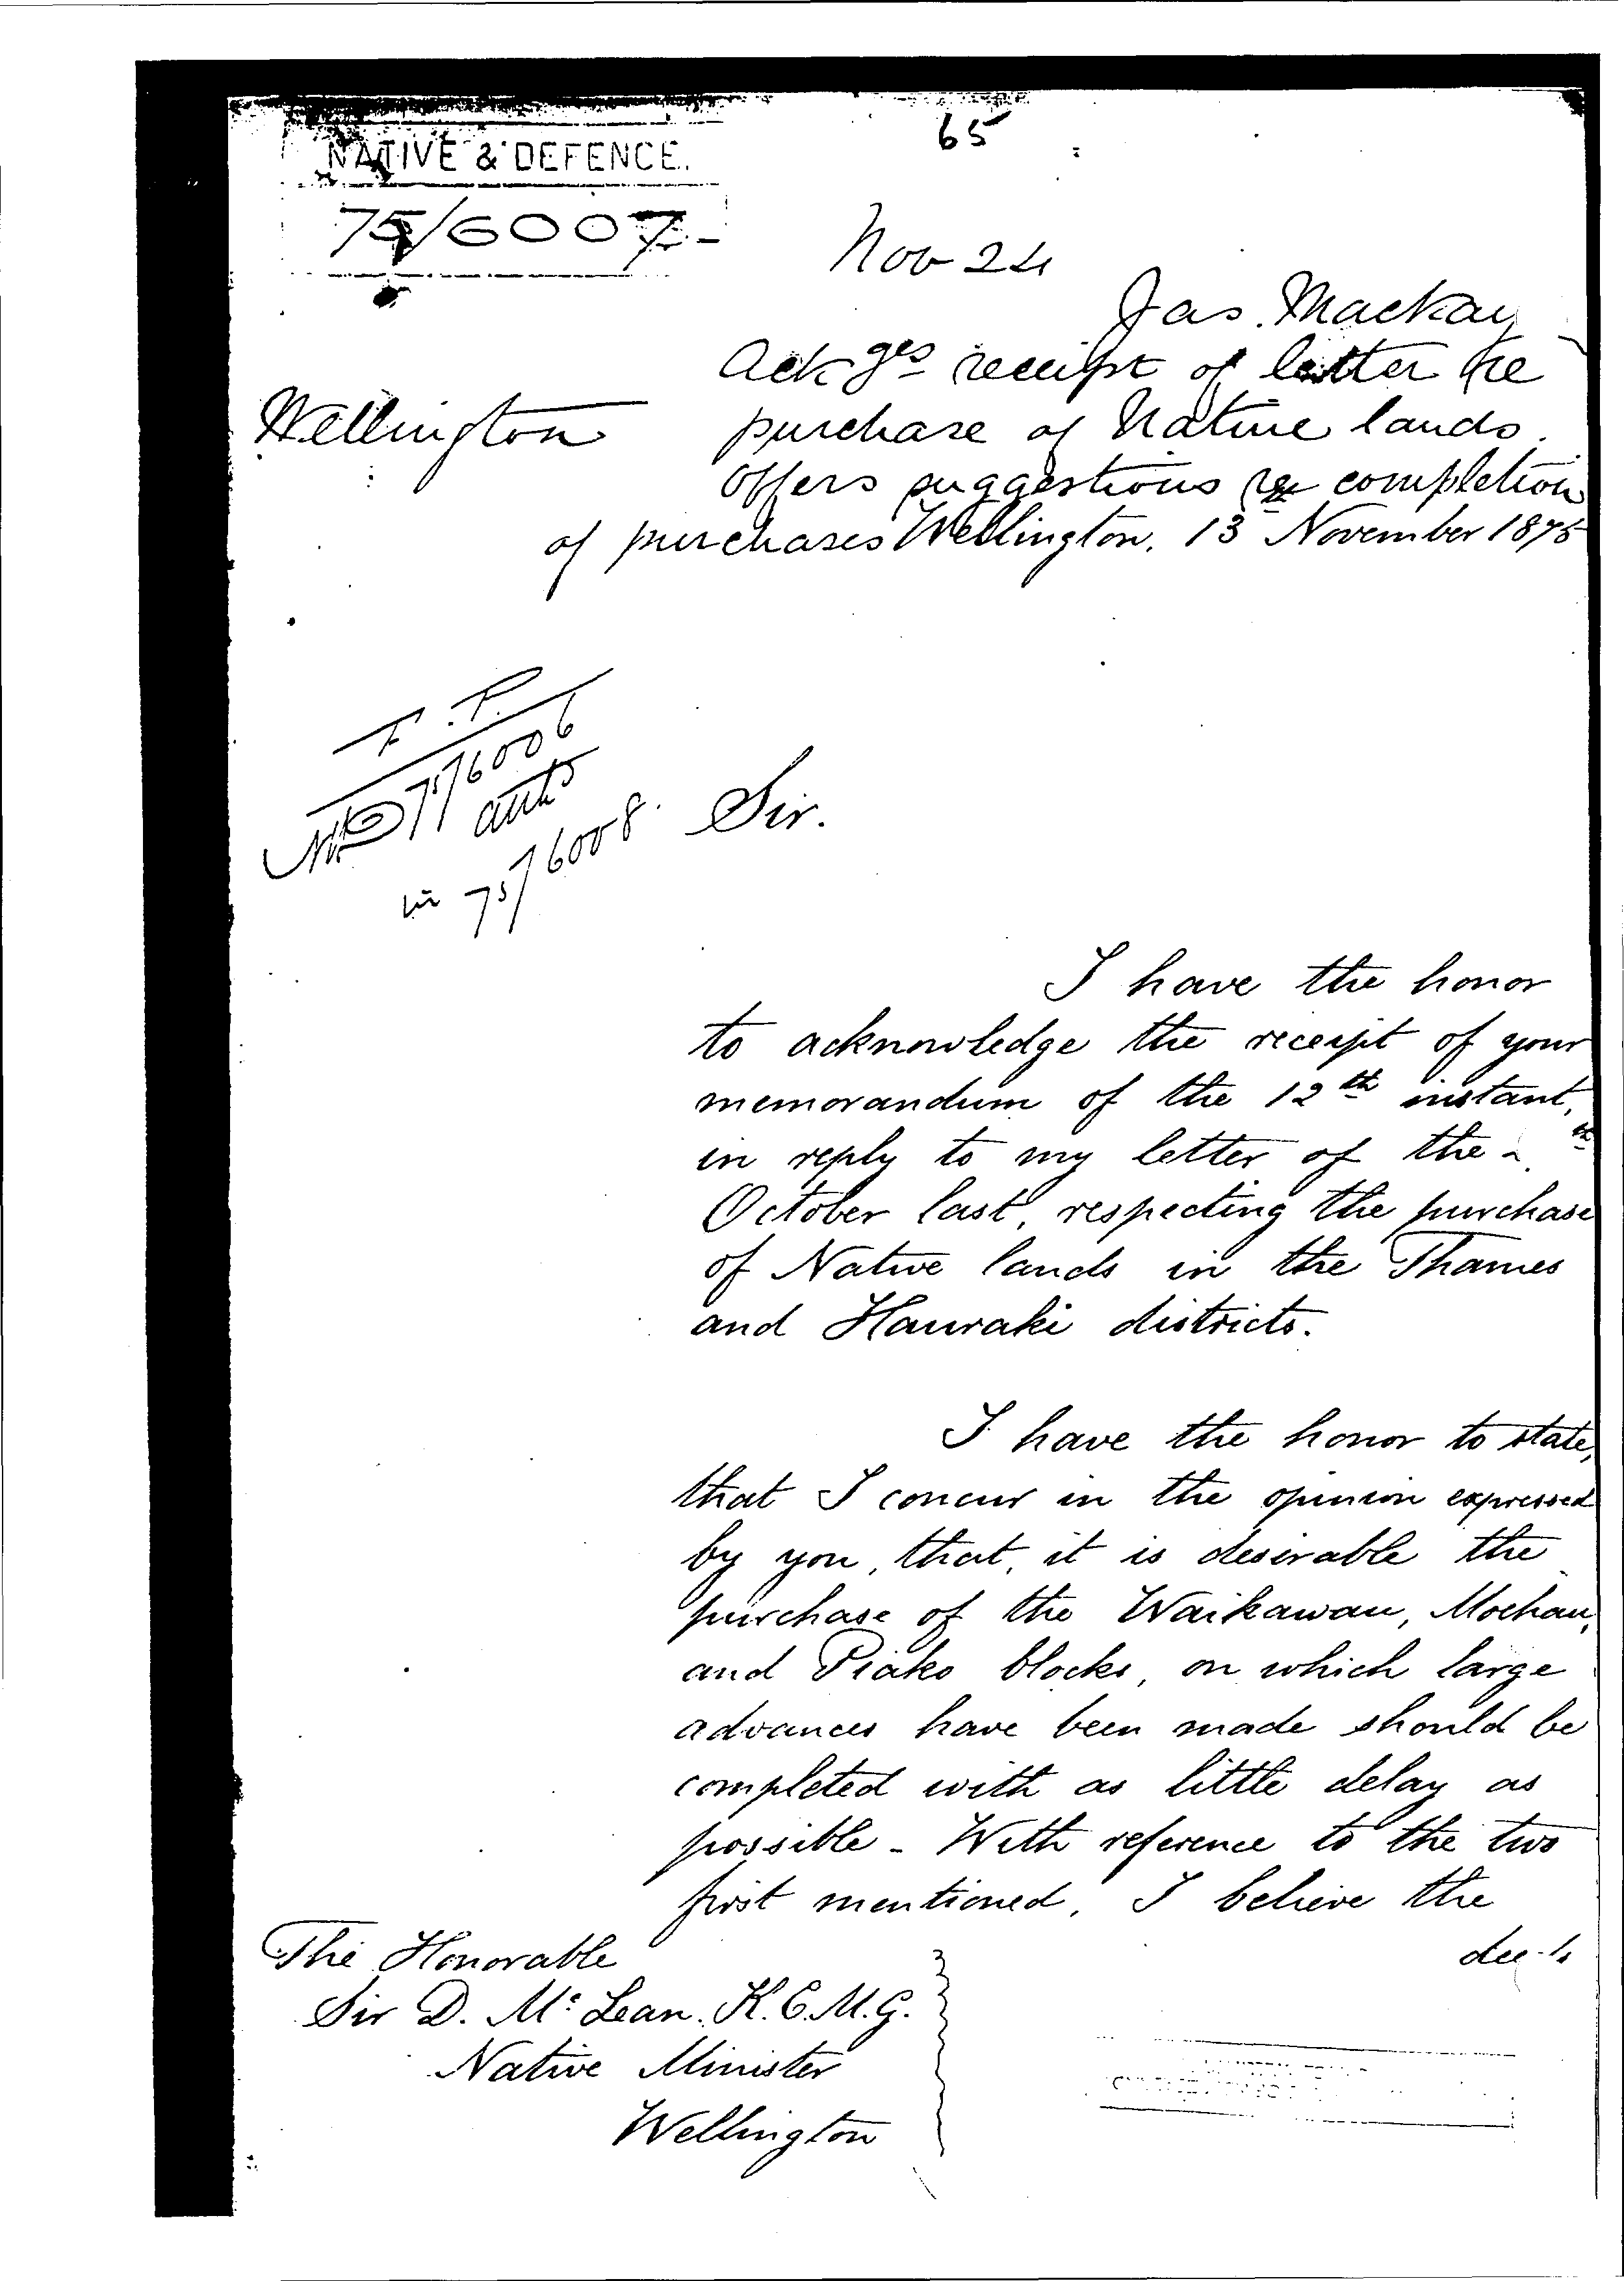 65
NATIVE & DEFENCE.
75/6007-
Nov 24
Jas. Mackay
Ackges receipt of letter re
Wellington
purchase of Native lands.
Offers suggestions re completion
of purchases Wellington. 13 November 1875
75/6006
in 75/6008.
Sir.
I have the honor
to acknowledge the receipt of your
memorandum of the 12th instant,
in reply to my letter of the
October last, respecting the purchase
of Native lands in the Thames
and Hauraki districts.
I have the honor to state,
that I concur in the opinion expressed
by you, that, it is desirable the
purchase of the Waikawau, Moehau,
and Piako blocks, on which large
advances have been made should be
completed with as little delay as
possible - With reference to the two
first mentioned, I believe the
The Honorable
Sir D. McLean. K.C.M.G.
Native Minister
Wellington